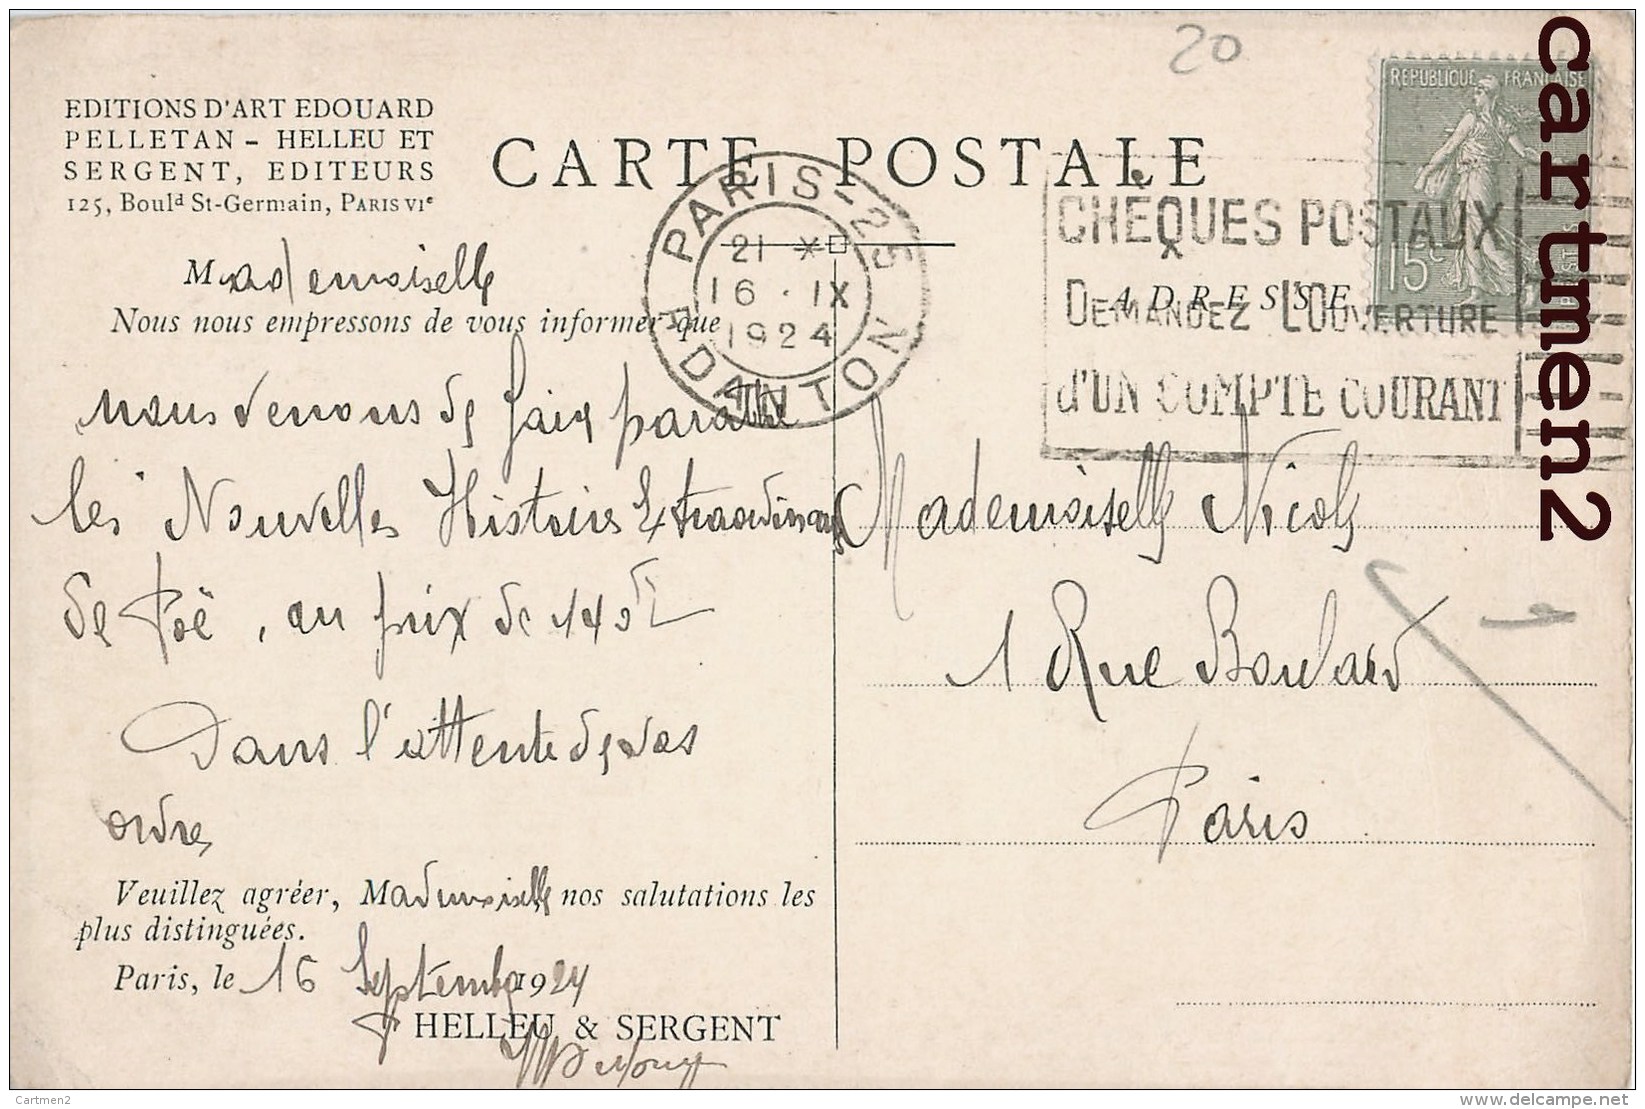 20
EDITIONS D'ART EDOUARD
PELLETAN - HELLEU ET
SERGENT, EDITEURS
125, Boulᵈ St-Germain, PARIS VIᵉ
CARTE POSTALE
REPUBLIQUE FRANÇAISE
15c
POSTES
PARIS-25
21 *
16 · IX
1924
R. DANTON
CHÈQUES POSTAUX
DEMANDEZ L'OUVERTURE
d'UN COMPTE COURANT
ADRESSE
Mademoiselle
Nous nous empressons de vous informer que
nous venons de faire paraître
les Nouvelles Histoires Extraordinaires
de Poë, au prix de 140f
Dans l'attente de vos
ordres
Veuillez agréer, Mademoiselle nos salutations les
plus distinguées.
Paris, le 16 Septembre 1924
P. HELLEU & SERGENT
Mademoiselle Nicole
1 Rue Boulard
Paris
cartmen2
Cartmen2
http://www.delcampe.net